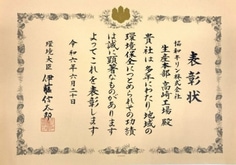 表彰状
協和キリン株式会社
生産本部 高崎工場 殿
貴社は多年にわたり地域の
環境保全につとめられその功績
は誠に顕著なものがあります
よってこれを表彰します
令和六年六月二十日
環境大臣 伊藤信太郎